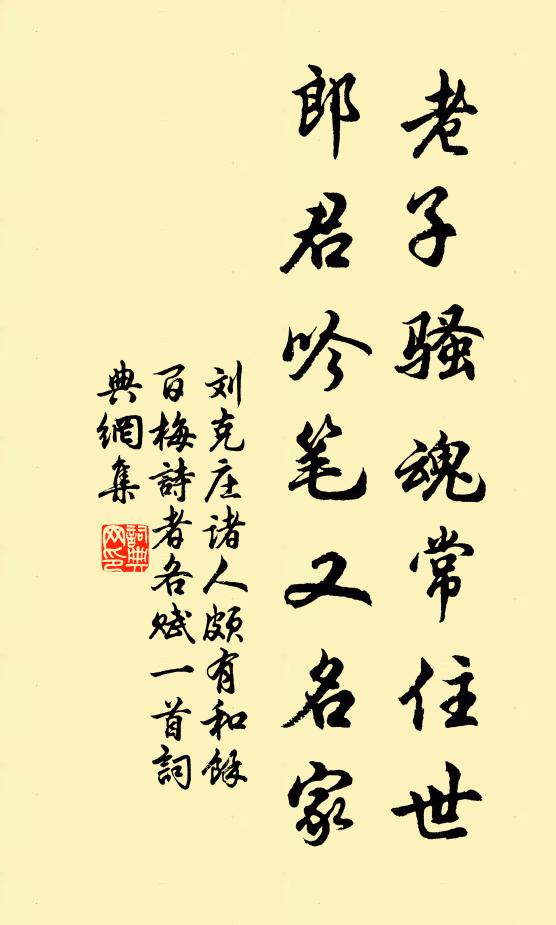 老子骚魂常住世
郎君吟笔又名家
刘克庄诸人颇有和余
百梅詩者各赋一首詞
典網集
詞典
网印